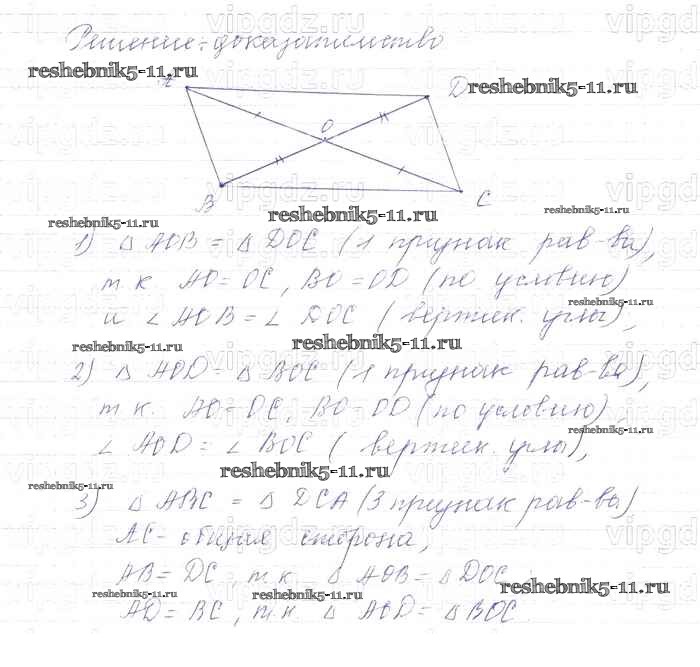 Решение: доказательство
reshebnik5-11.ru
A
D
reshebnik5-11.ru
O
B
C
reshebnik5-11.ru
reshebnik5-11.ru
reshebnik5-11.ru
1) △ AOB = △ DOC (1 признак рав-ва),
т.к AO = OC, BO = OD (по условию)
reshebnik5-11.ru
и ∠ AOB = ∠ DOC (вертик. углы),
reshebnik5-11.ru
reshebnik5-11.ru
2) △ AOD = △ BOC (1 признак рав-ва),
т.к. AO = OC, BO = OD (по условию)
reshebnik5-11.ru
∠ AOD = ∠ BOC (вертик. углы),
reshebnik5-11.ru
reshebnik5-11.ru
3) △ ABC = △ DCA (3 признак рав-ва)
AC - общая сторона,
AB = DC, т.к. △ AOB = △ DOC
reshebnik5-11.ru
reshebnik5-11.ru
reshebnik5-11.ru
AD = BC, т.к. △ AOD = △ BOC.
vipgdz.ru